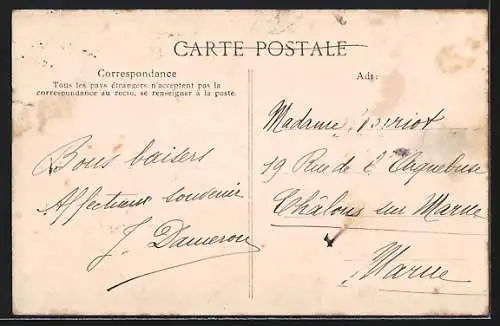 CARTE POSTALE
Correspondance
Tous les pays étrangers n'acceptent pas la
correspondance au recto, se renseigner à la poste.
Bons baisers
Affectueux souvenir
J. Dameron
Adr
Madame
19 Rue de l'Arquebuse
Châlons sur Marne
Marne